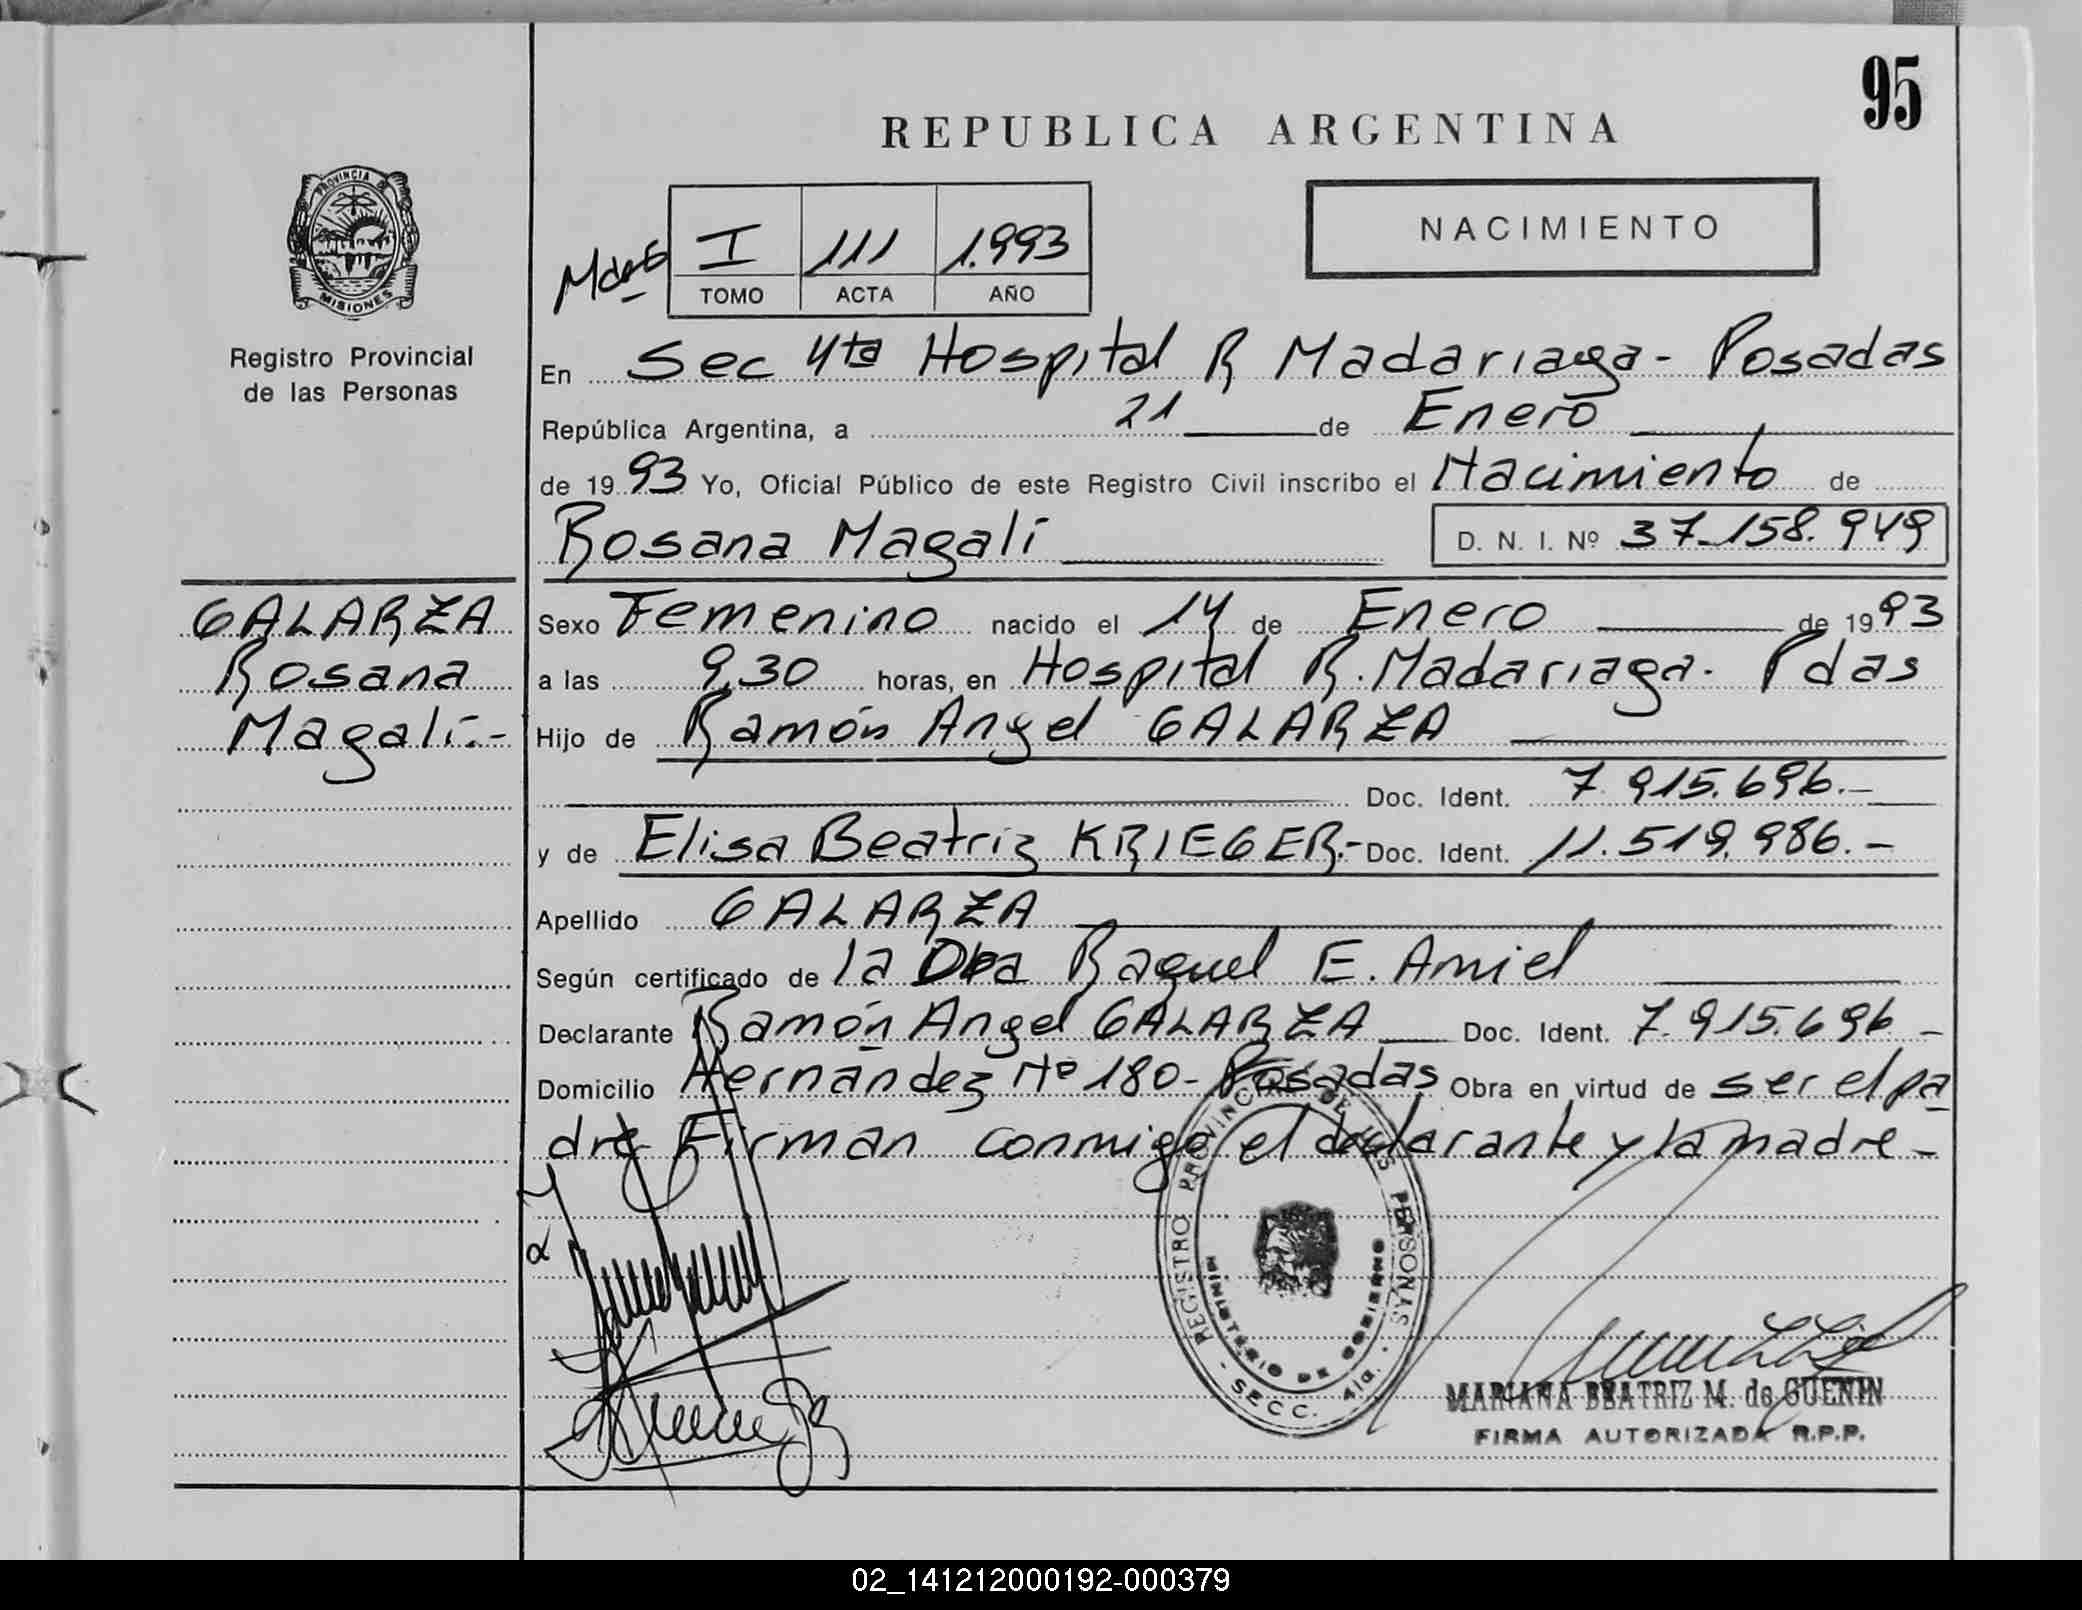 95
REPUBLICA ARGENTINA
PROVINCIA DE
MISIONES
Registro Provincial
de las Personas
I 111 1.993
TOMO ACTA AÑO
NACIMIENTO
En Sec 4ta Hospital R Madariaga - Posadas
República Argentina, a 21 de Enero
de 1993 Yo, Oficial Público de este Registro Civil inscribo el Nacimiento de
Rosana Magalí D. N. I. Nº 37.158.949
GALARZA
Rosana
Magalí.-
Sexo Femenino nacido el 14 de Enero de 1993
a las 9,30 horas, en Hospital R. Madariaga. Pdas
Hijo de Ramón Angel GALARZA
Doc. Ident. 7.915.696.-
y de Elisa Beatriz KRIEGER.- Doc. Ident. 11.519.986.-
Apellido GALARZA
Según certificado de la Dra Raquel E. Amiel
Declarante Ramón Angel GALARZA Doc. Ident. 7.915.696 -
Domicilio Hernández Nº 180 - Posadas Obra en virtud de ser el pa
dre Firman conmigo el declarante y la madre -
REGISTRO PROVINCIAL DE LAS PERSONAS
MINISTERIO DE GOBIERNO
- SECC. 4ta. -
MARIANA BEATRIZ M. de GUENIN
FIRMA AUTORIZADA R.P.P.
02_141212000192-000379